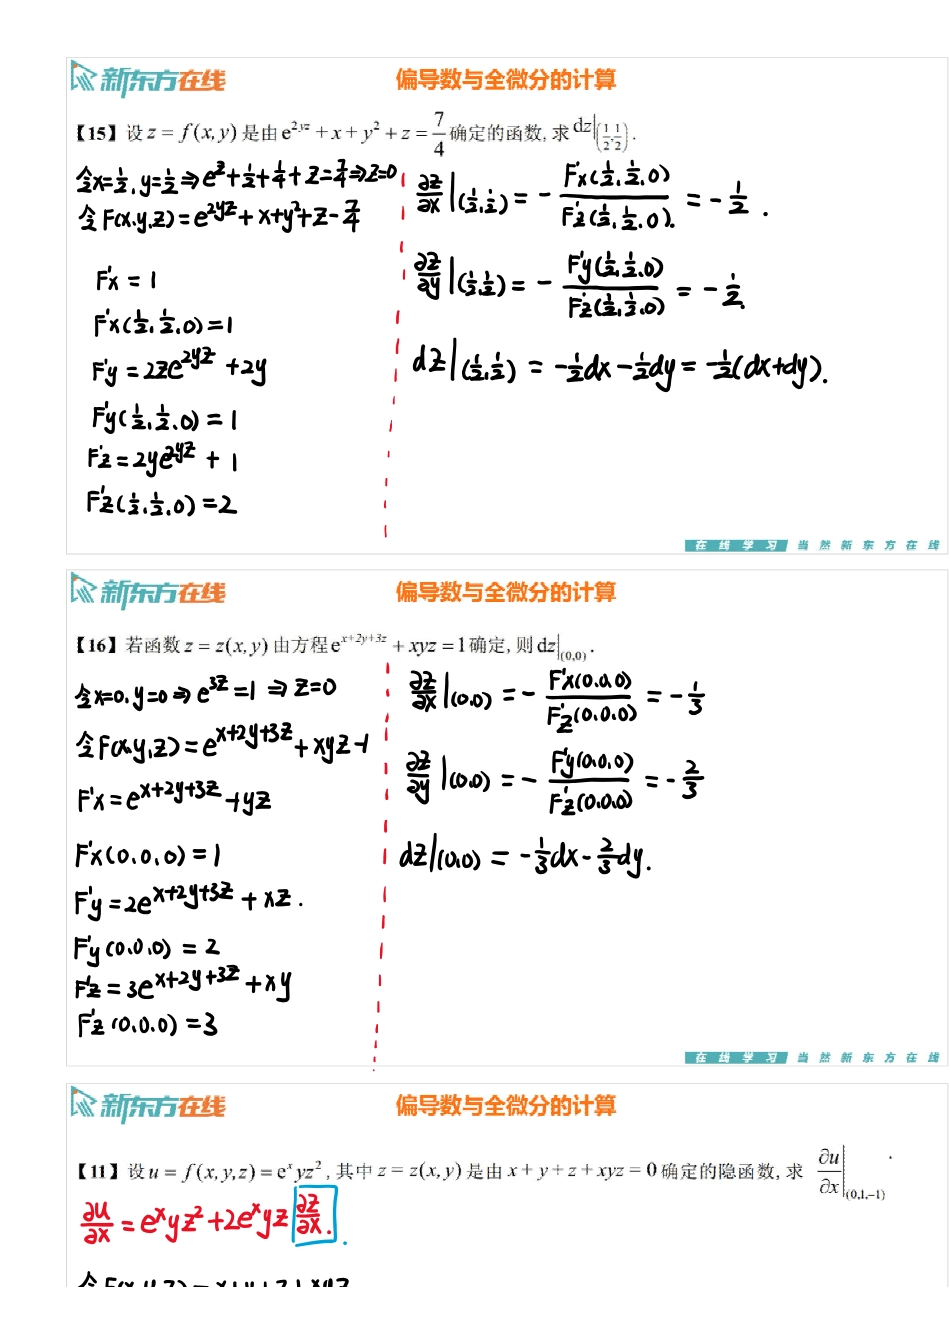 新东方在线
偏导数与全微分的计算
【15】设 z = f(x,y) 是由 e^{2yz} + x + y² + z = 7/4 确定的函数, 求 dz|(1/2,1/2).
令x=1/2, y=1/2 ⇒ e^z+1/2+1/4+z=7/4 ⇒ z=0
令 F(x.y.z) = e^{2yz} + x+y²+z-7/4
F'x = 1
F'x(1/2, 1/2, 0) = 1
F'y = 2ze^{2yz} + 2y
F'y(1/2, 1/2, 0) = 1
F'z = 2ye^{2yz} + 1
F'z(1/2, 1/2, 0) = 2
∂z/∂x |(1/2,1/2) = - F'x(1/2, 1/2, 0)/F'z(1/2, 1/2, 0). = - 1/2 .
∂z/∂y |(1/2,1/2) = - F'y(1/2, 1/2, 0)/F'z(1/2, 1/2, 0) = - 1/2.
dz|(1/2,1/2) = -1/2dx -1/2dy = -1/2(dx+dy).
在线学习 当然新东方在线
新东方在线
偏导数与全微分的计算
【16】若函数 z = z(x,y) 由方程 e^{x+2y+3z} + xyz = 1 确定, 则 dz|(0,0) .
令x=0, y=0 ⇒ e^{3z} = 1 ⇒ z=0
令 F(x,y,z) = e^{x+2y+3z} + xyz -1
F'x = e^{x+2y+3z} + yz
F'x(0.0.0) = 1
F'y = 2e^{x+2y+3z} + xz .
F'y(0.0.0) = 2
F'z = 3e^{x+2y+3z} + xy
F'z(0.0.0) = 3
∂z/∂x |(0.0) = - F'x(0.0.0)/F'z(0.0.0) = - 1/3
∂z/∂y |(0.0) = - F'y(0.0.0)/F'z(0.0.0) = - 2/3
dz|(0,0) = -1/3dx - 2/3dy.
在线学习 当然新东方在线
新东方在线
偏导数与全微分的计算
【11】设 u = f(x,y,z) = e^x yz², 其中 z = z(x,y) 是由 x + y + z + xyz = 0 确定的隐函数, 求 ∂u/∂x |(0,1,-1) .
∂u/∂x = e^x yz² + 2e^x yz ∂z/∂x. .
令 F(x,y,z) = x+y+z+xyz